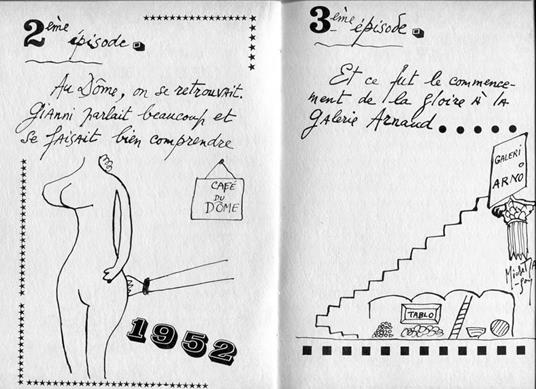 2ème épisode.
Au Dôme, on se retrouvait.
Gianni parlait beaucoup et
se faisait bien comprendre
CAFÉ
DU
DÔME
1952
3ème épisode.
Et ce fut le commence-
ment de la gloire à la
Galerie Arnaud.....
GALERI
O
ARNO
TABLO